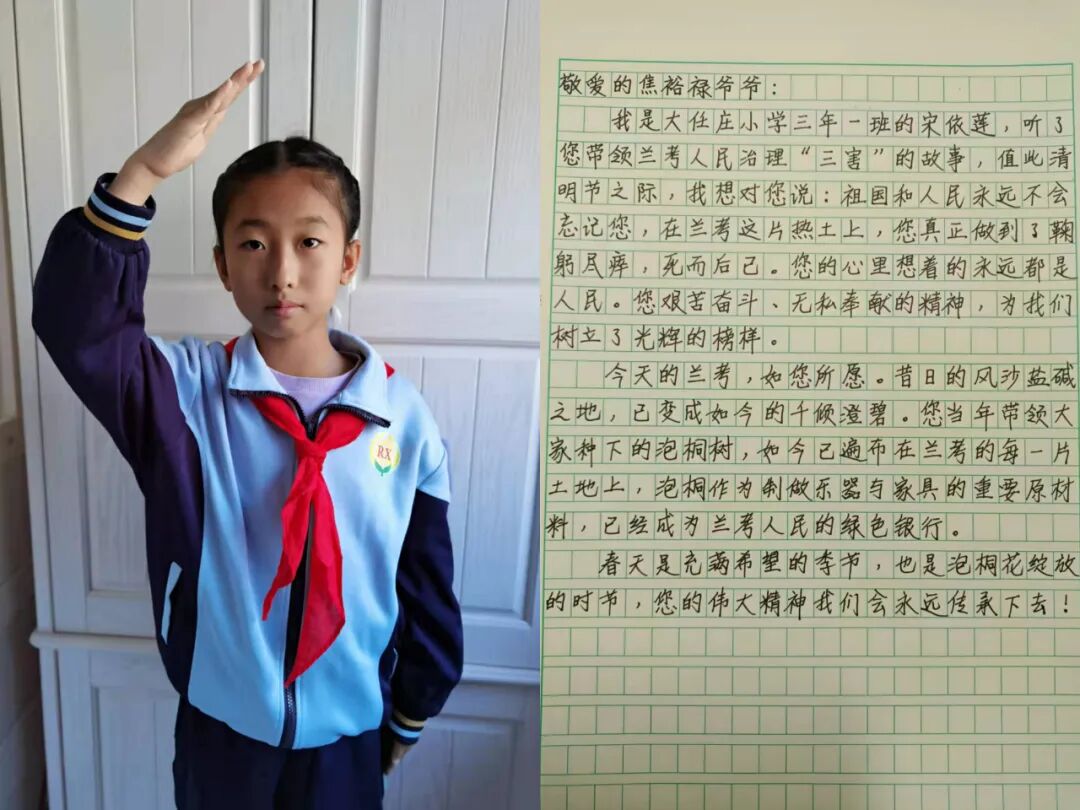 RX
敬爱的焦裕禄爷爷：
我是大任庄小学三年一班的宋依莲，听了
您带领兰考人民治理“三害”的故事，值此清
明节之际，我想对您说：祖国和人民永远不会
忘记您，在兰考这片热土上，您真正做到了鞠
躬尽瘁，死而后己。您的心里想着的永远都是
人民。您艰苦奋斗、无私奉献的精神，为我们
树立了光辉的榜样。
今天的兰考，如您所愿。昔日的风沙盐碱
之地，已变成如今的千倾澄碧。您当年带领大
家种下的泡桐树，如今已遍布在兰考的每一片
土地上，泡桐作为制做乐器与家具的重要原材
料，已经成为兰考人民的绿色银行。
春天是充满希望的季节，也是泡桐花绽放
的时节，您的伟大精神我们会永远传承下去！